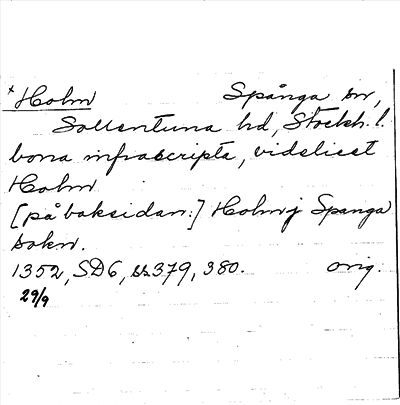 × Holm Spånga sn,
Sollentuna hd, Stockh. l.
bona infrascripta, videlicet
Holm
[på baksidan:] Holm j Spanga
sokn.
1352, SD6, ss 379, 380. orig.
29/9